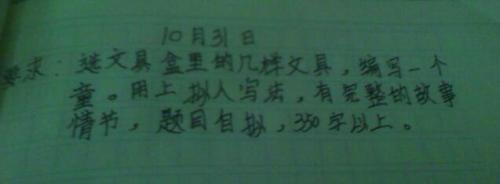 10月31日
要求：选文具盒里的几样文具，编写一个
童。用上拟人写法，有完整的故事
情节，题目自拟，350字以上。